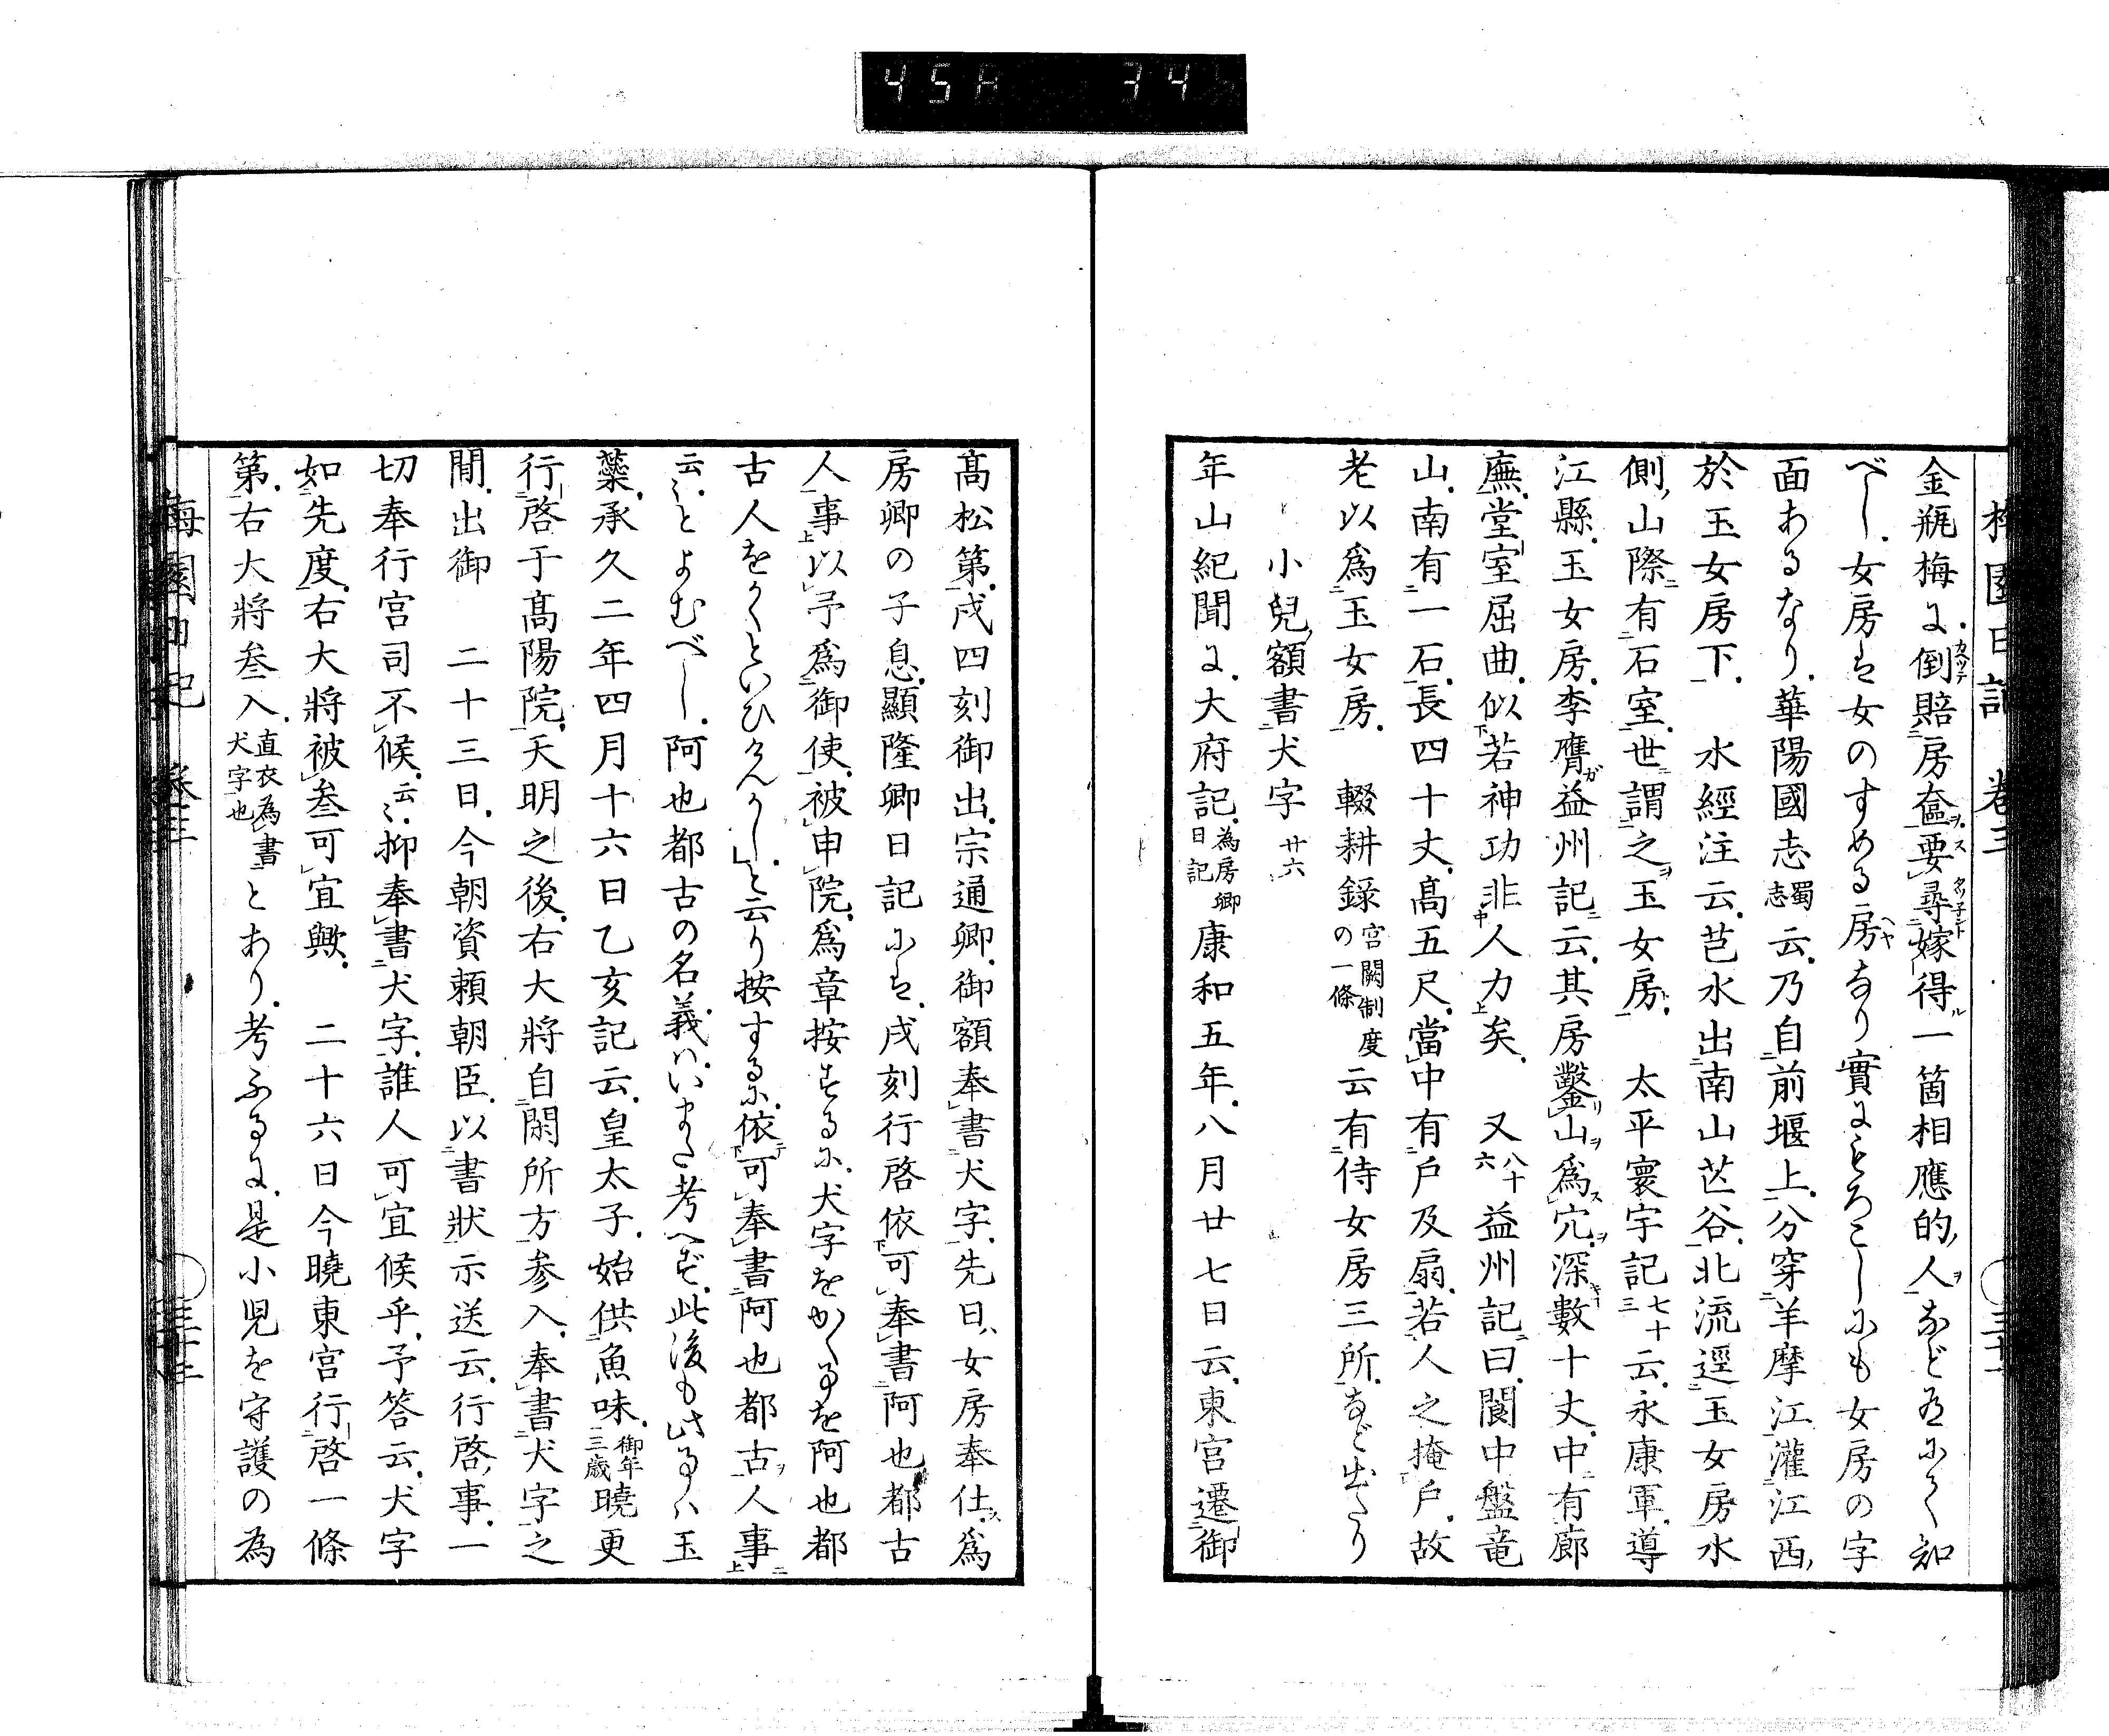 45A 34
梅園日記 卷三 三十一
金瓶梅に倒賠房奩要尋嫁得一箇相應的人などあるにて知
べし女房は女のすめる房なり實にもろこしにも女房の字
面あるなり華陽國志蜀志云乃自前堰上分穿羊摩江灌江西
於玉女房下 水經注云芑水出南山芑谷北流逕玉女房水
側山際有石室世謂之玉女房 太平寰宇記七十三云永康軍導
江縣玉女房李膺益州記云其房鑿山爲穴深數十丈中有廊
廡堂室屈曲似若神功非人力矣 又八十六益州記曰閬中盤竜
山南有一石長四十丈高五尺當中有戶及扇若人之掩戶故
老以爲玉女房 輟耕錄宮闕制度の一條云有侍女房三所など出たり
小兒額書犬字 廿六
年山紀聞に大府記為房卿日記康和五年八月廿七日云東宮遷御
高松第戌四刻御出宗通卿御額奉書犬字先日女房奉仕爲
房卿の子息顯隆卿日記には戌刻行啓依可奉書阿也都古
人事以予爲御使被申院爲章按ずるに犬字をかくるを阿也都
古人をかくといひけんかしと云り按するに依可奉書阿也都古人事
云〻とよむべし阿也都古の名義はいまだ考へず此後も此事は玉
蘂承久二年四月十六日乙亥記云皇太子始供魚味御年三歳曉更
行啓于高陽院天明之後右大將自閑所方参入奉書犬字之
間出御 二十三日今朝資賴朝臣以書狀示送云行啓事一
切奉行宮司不候云〻抑奉書犬字誰人可宜候乎予答云犬字
如先度右大將被叅可宜歟 二十六日今曉東宮行啓一條
第右大將叅入直衣為書犬字也とあり考ふるに是小児を守護の為
梅園日記 卷三 三十一